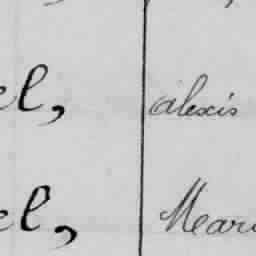 el, alexis
el, Mari